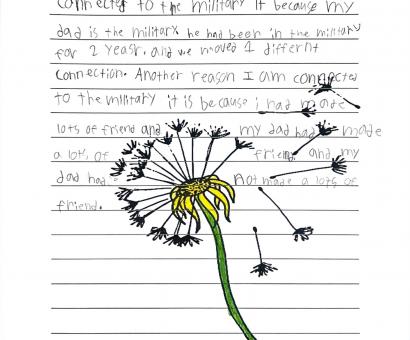 connected to the military it because my
dad is the military. he had been in the military
for 2 yeasr. and we moved 1 differnt
connection. Another reason I am connected
to the military it is because i had made
lots of friend and my dad had made
a lots of friend. and my
dad had. not made a lots of
friend.